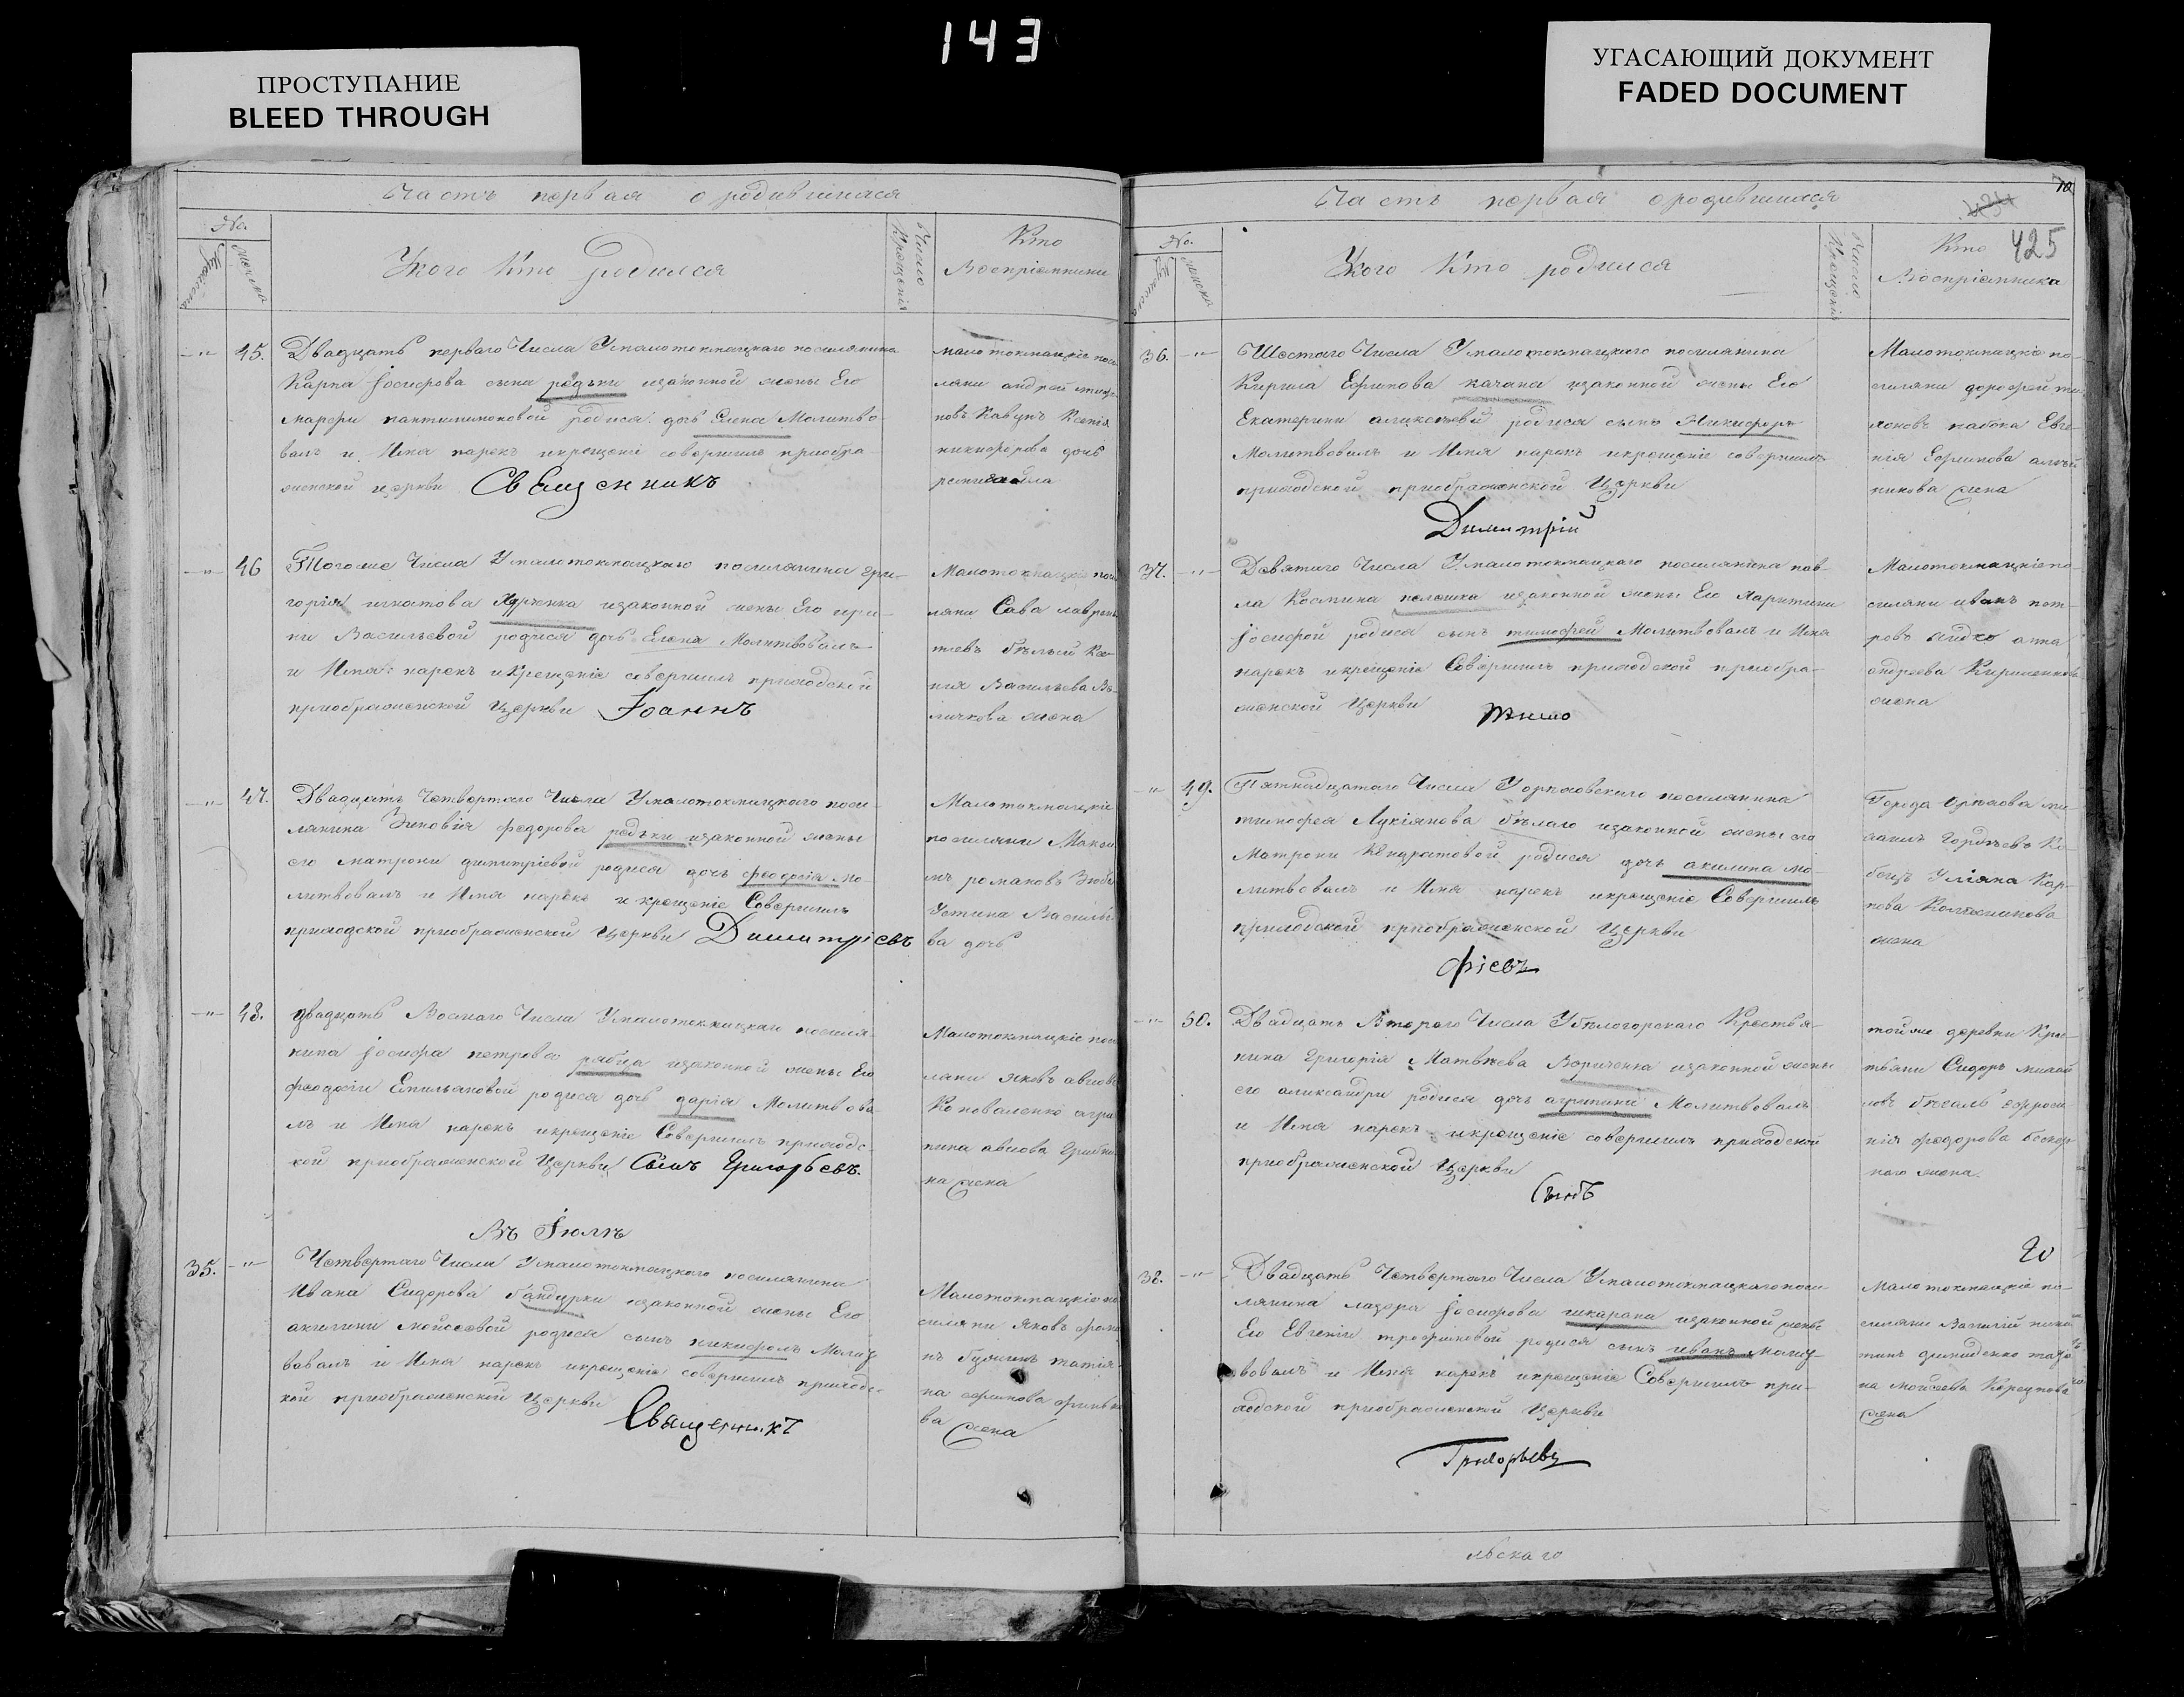 143
ПРОСТУПАНИЕ
BLEED THROUGH
УГАСАЮЩИЙ ДОКУМЕНТ
FADED DOCUMENT
Часть первая о родившихся
No.
Мужеска
Женска
Укого Кто родился
Число Крещенія
Кто
Воспріемники
45. Двадцать перваго Числа Умалотокмацкаго поселянина
Карпа Іосифова сына редьки изаконной жены Его
марфы пантилимоновой родися дочь Елена Молитво
валъ и Имя нарекъ икрещеніе совершилъ приобра
женской церкви Священникъ
мало токмацкіе посе
ляни андрей
новъ Кавунъ Ксенія
никифорова дочь
46 Тогоже Числа Умалотокмацкаго поселянина гри-
горія игнатова Юрченка изаконной жены Его ири-
ни Васильевой родися дочь Елена Молитвовалъ
и Имя нарекъ иКрещеніе совершилъ приходской
приображенской Церкви Іоаннъ
Малотокмацкіе посе
ляни Сава лаврен
тіевъ бѣлый Ксе-
нія Васильева Ве-
личкова жена
47. Двадцать Четвертаго Числа Умалотокмацкаго посе-
лянина Зиновія федорова редьки изаконной жены
его матроны димитріевой родися дочь феодосія Мо-
литвовалъ и Имя нарекъ и крещеніе Совершилъ
приходской приображенской Церкви Димитріевъ
Малотокмацкіе
поселяни Макси
мъ романовъ
Устина Василье
ва дочь
48. двадцать Восмаго Числа Умалотокмацкаго поселя-
нина Іосифа петрова рябца изаконной жены Его
феодосіи Емильяновой родися дочь дарія Молитвова
лъ и Имя нарекъ икрещеніе Совершилъ приходс-
кой приображенской Церкви Сынъ Григорьевъ.
Малотокмацкіе посе
ляни яковъ
Коноваленко агри
пина
на жена
Въ Іюлѣ
35. Четвертаго Числа Умалотокмацкаго поселянина
Ивана Сидорова бандурки изаконной жены Его
акилини мойсеевой родися сынъ никифоръ Молит
вовалъ и Имя нарекъ икрещеніе совершилъ приходс-
кой приображенской Церкви
Священникъ
Малотокмацкіе по
селяни Яковъ
татія
на ефимова
ва жена
Часть первая ородившихся
10
434
425
No.
Мужеска
Женска
Укого Кто родился
Число Крещенія
Кто
Воспріемника
36. Шестаго Числа Умалотокмацкаго поселянина
Кирила Ефимова качана изаконной жены Его
Екатерини аликсѣевой родися сынъ Никифоръ
Молитвовалъ и Имя нарекъ икрещеніе совершилъ
приходской приображенской Церкви
Димитрій
Малотокмацкіе по-
селяни дорофей
Евге-
нія Ефимова
никова жена
37. Девятаго Числа Умалотокмацкаго поселянина пав-
ла Космина изаконной жены Его Харитини
Іосифой родися сынъ тимофей Молитвовалъ и Имя
нарекъ икрещеніе Совершилъ приходской приобра-
женской Церкви
Тимо
Малотокмацкіе по-
селяни иванъ пет-
ровъ анна
андреева Кириченкова
жена
49. Пятнадцатаго Числа Уорѣховскаго поселянина
тимофея Лукіянова бѣлаго изаконной жены его
Матроны Кондратовой родися дочь акилина Мо-
литвовалъ и Имя нарекъ икрещеніе Совершилъ
приходской приображенской Церкви
фіевъ
Города Орѣхова ми
хаилъ Гордѣевъ Ко-
бецъ Уліяна Кар-
пова Колѣсникова
жена
50. Двадцать Втораго Числа Убѣлогорскаго Крестья-
нина Григорія Матвѣева изаконной жены
его алиександри родися дочь агрипина Молитвовалъ
и Имя нарекъ икрещеніе совершилъ приходской
приображенской Церкви
Сынъ
тойже деревни Крес-
тьяни Сидоръ михай
ловъ Ефроси
нія федорова
наго жена.
38. Двадцать Четвертаго Числа Умалотокмацкаго посе-
лянина лазара Іосифова шкарапа изаконной жены
Его Евгеніи трофимовой родися сынъ иванъ Молит-
вовалъ и Имя нарекъ икрещеніе Совершилъ при-
ходской приображенской Церкви
Григорьевъ
Малотокмацкіе по-
селяни Василій ники
тинъ
на мойсеева
жена
льскаго